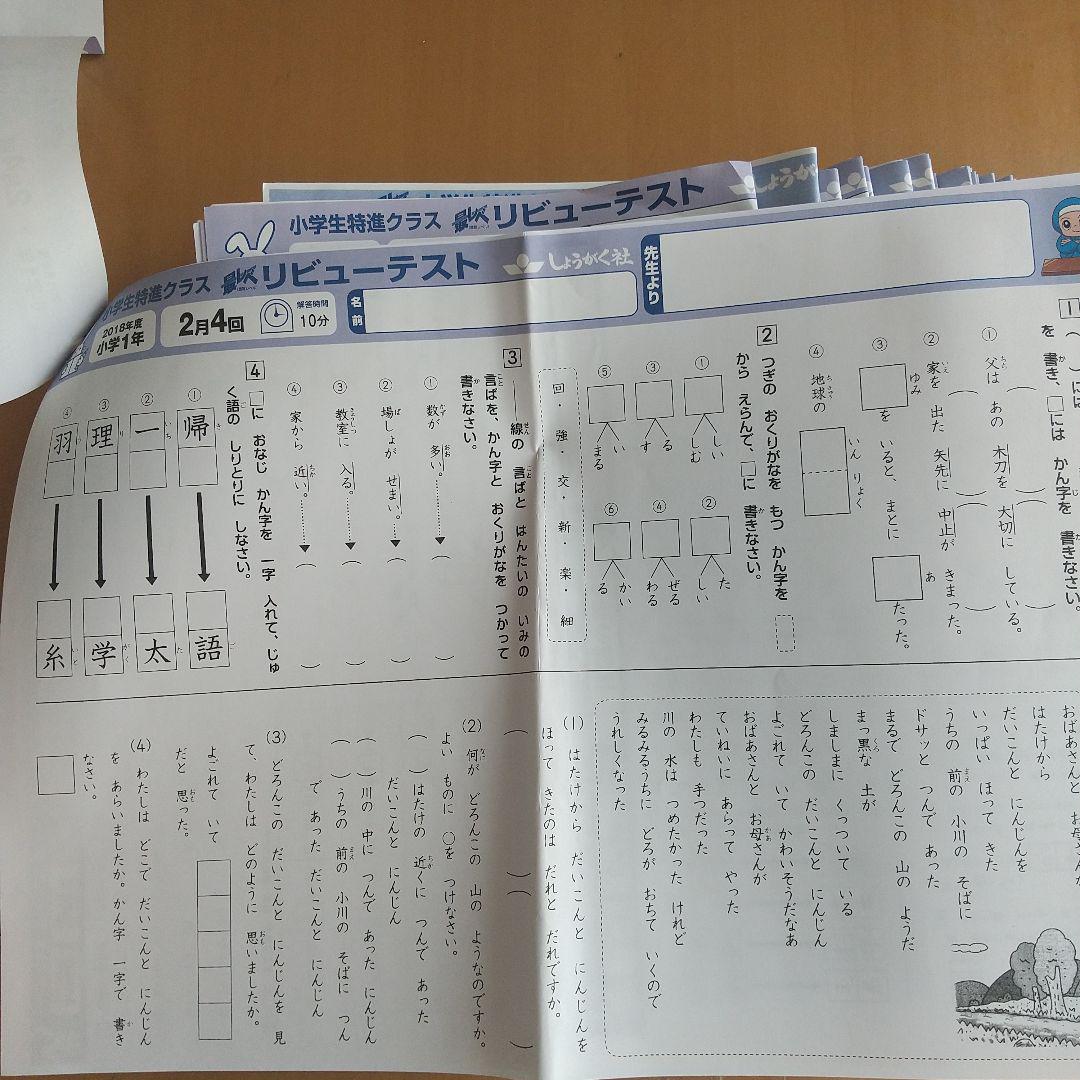 小学生特進クラス 最レベ リビューテスト
しょうが
小学生特進クラス 最レベ リビューテスト
しょうがく社
2018年度
小学1年
2月4回
解答時間
10分
名前
先生より
1
には かん字を 書きなさい。
を 書き、□には
① 父は あの 木刀を 大切に している。
② 家を 出た 矢先に 中止が きまった。
③ □を いると、まとに □たった。
ゆみ
あ
④ 地球の
いん りょく
2 つぎの おくりがなを もつ かん字を
から えらんで、□に 書きなさい。
① しい しむ
② た しい
③ い する
④ ぜる わる
⑤ い まる
⑥ かい る
回・強・交・新・楽・細
3 ――線の 言ばと はんたいの いみの
言ばを、かん字と おくりがなを つかって
書きなさい。
① 数が 多い。 ( )
② 場しょが せまい。 ( )
③ 教室に 入る。 ( )
④ 家から 近い。 ( )
4 □に おなじ かん字を 一字 入れて、じゅ
く語の しりとりに しなさい。
① 帰 語
② 一 太
③ 理 学
④ 羽 糸
おばあさんと お母さんが
はたけから
だいこんと にんじんを
いっぱい ほって きた
うちの 前の 小川の そばに
ドサッと つんで あった
まるで どろんこの 山の ようだ
まっ黒な 土が
しましまに くっついて いる
どろんこの だいこんと にんじん
よごれて いて かわいそうだなあ
おばあさんと お母さんが
ていねいに あらって やった
わたしも 手つだった
川の 水は つめたかった けれど
みるみるうちに どろが おちて いくので
うれしくなった
(1) はたけから だいこんと にんじんを
ほって きたのは だれと だれですか。
( ) ( )
(2) 何が どろんこの 山の ようなのですか。
よい ものに ○を つけなさい。
( )はたけの 近くに つんで あった
だいこんと にんじん
( )川の 中に つんで あった にんじん
( )うちの 前の 小川の そばに つん
で あった だいこんと にんじん
(3) どろんこの だいこんと にんじんを 見
て、わたしは どのように 思いましたか。
よごれて いて
だと 思った。
(4) わたしは どこで だいこんと にんじん
を あらいましたか。かん字 一字で 書き
なさい。